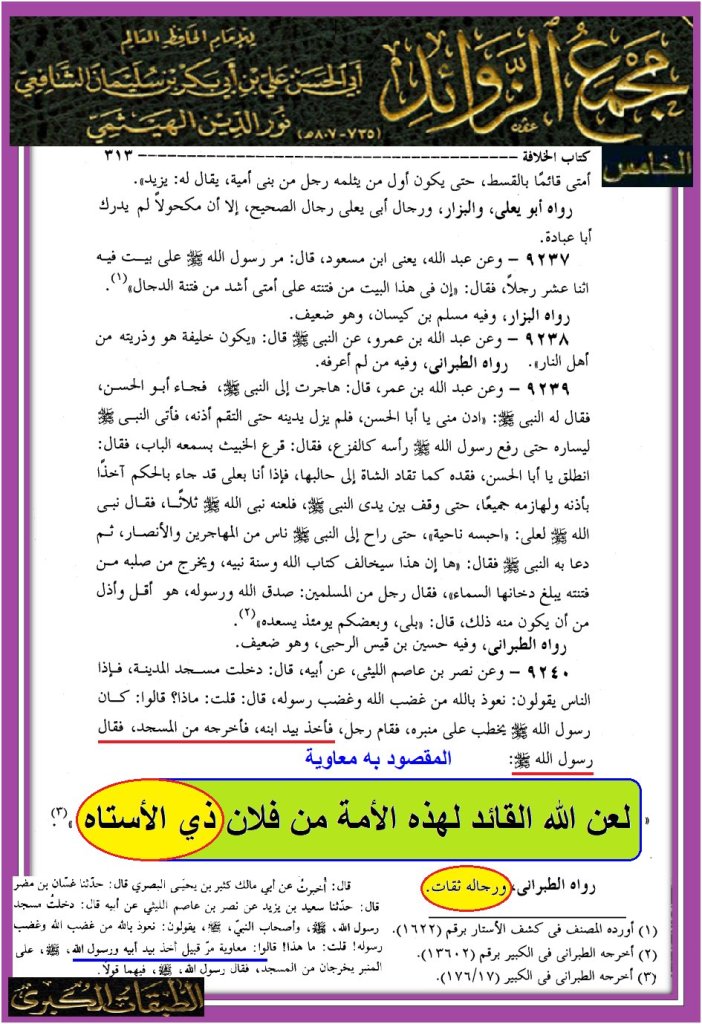 للإمام الحافظ العالم
مجمع الزوائد
أبي الحسن علي بن أبي بكر بن سليمان الشافعي
نور الدين الهيثمي
(٧٣٥-٨٠٧هـ)
الخامس
كتاب الخلافة ---------- ٣١٣
أمتى قائمًا بالقسط، حتى يكون أول من يثلمه رجل من بنى أمية، يقال له: يزيد».
رواه أبو يعلى، والبزار، ورجال أبى يعلى رجال الصحيح، إلا أن مكحولاً لم يدرك
أبا عبادة.
٩٢٣٧ - وعن عبد الله، يعنى ابن مسعود، قال: مر رسول الله ﷺ على بيت فيه
اثنا عشر رجلاً، فقال: «إن فى هذا البيت من فتنته على أمتى أشد من فتنة الدجال»(١).
رواه البزار، وفيه مسلم بن كيسان، وهو ضعيف.
٩٢٣٨ - وعن عبد الله بن عمرو، عن النبى ﷺ قال: «يكون خليفة هو وذريته من
أهل النار». رواه الطبرانى، وفيه من لم أعرفه.
٩٢٣٩ - وعن عبد الله بن عمر، قال: هاجرت إلى النبى ﷺ، فجاء أبو الحسن،
فقال له النبى ﷺ: «ادن منى يا أبا الحسن، فلم يزل يدينه حتى التقم أذنه، فأتى النبى ﷺ
ليساره حتى رفع رسول الله ﷺ رأسه كالفزع، فقال: قرع الخبيث بسمعه الباب، فقال:
انطلق يا أبا الحسن، فقده كما تقاد الشاة إلى حالبها، فإذا أنا بعلى قد جاء بالحكم آخذًا
بأذنه ولهازمه جميعًا، حتى وقف بين يدى النبى ﷺ، فلعنه نبى الله ﷺ ثلاثًا، فقال نبى
الله ﷺ لعلى: «احبسه ناحية»، حتى راح إلى النبى ﷺ ناس من المهاجرين والأنصار، ثم
دعا به النبى ﷺ فقال: «ها إن هذا سيخالف كتاب الله وسنة نبيه، ويخرج من صلبه من
فتنته يبلغ دخانها السماء»، فقال رجل من المسلمين: صدق الله ورسوله، هو أقل وأذل
من أن يكون منه ذلك، قال: «بلى، وبعضكم يومئذ يسعده»(٢).
رواه الطبرانى، وفيه حسين بن قيس الرحبى، وهو ضعيف.
٩٢٤٠ - وعن نصر بن عاصم الليثى، عن أبيه، قال: دخلت مسجد المدينة، فإذا
الناس يقولون: نعوذ بالله من غضب الله وغضب رسوله، قال: قلت: ماذا؟ قالوا: كان
رسول الله ﷺ يخطب على منبره، فقام رجل، فأخذ بيد ابنه، فأخرجه من المسجد، فقال
رسول الله ﷺ: المقصود به معاوية
« لعن الله القائد لهذه الأمة من فلان ذي الأستاه »(٣).
رواه الطبرانى، ورجاله ثقات.
(١) أورده المصنف فى كشف الأستار برقم (١٦٢٢).
(٢) أخرجه الطبرانى فى الكبير برقم (١٣٦٠٢).
(٣) أخرجه الطبرانى فى الكبير (١٧٦/١٧).
قال: أُخبرتُ عن أبي مالك كثير بن يحيَى البصري قال: حدّثنا غسّان بن مضر
قال: حدّثنا سعيد بن يزيد عن نصر بن عاصم الليثي عن أبيه قال: دخلتُ مسجد
رسول الله، ﷺ، وأصحاب النبيّ، ﷺ، يقولون: نعوذ بالله من غضب الله وغضب
رسوله! قلت: ما هذا! قالوا: معاوية مرّ قبيل أخذ بيد أبيه ورسول الله، ﷺ، على
المنبر يخرجان من المسجد، فقال رسول الله، ﷺ، فيهما قولاً.
الطبقات الكبرى